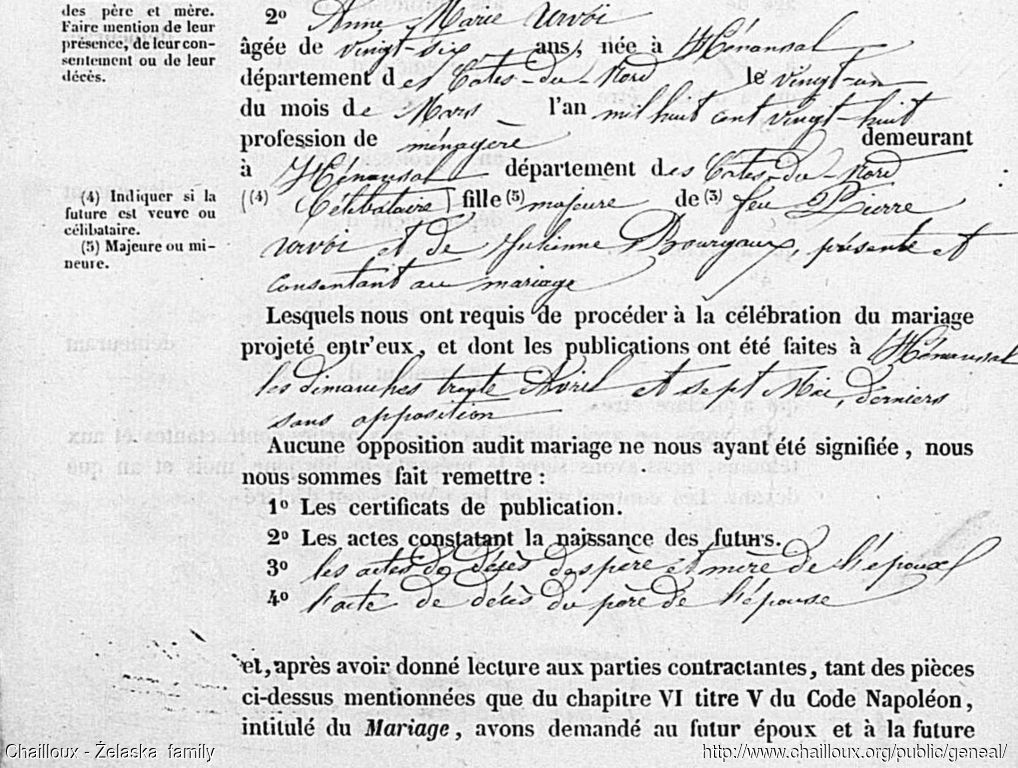 des père et mère.
Faire mention de leur
présence, de leur con-
sentement ou de leur
décès.
(4) Indiquer si la
future est veuve ou
célibataire.
(5) Majeure ou mi-
neure.
2º Anne Marie Urvoi
âgée de vingt-six ans, née à Hénansal
département des Côtes-du-Nord le vingt-un
du mois de Mars l'an mil huit cent vingt-huit
profession de ménagère demeurant
à Hénansal département des Côtes-du-Nord
(4) Célibataire) fille (5) majeure de (3) feu Pierre
Urvoi et de Julienne Bourgaux, présente et
consentant au mariage
Lesquels nous ont requis de procéder à la célébration du mariage
projeté entr'eux, et dont les publications ont été faites à Hénansal
les dimanches trente Avril et sept Mai, derniers
sans opposition
Aucune opposition audit mariage ne nous ayant été signifiée, nous
nous sommes fait remettre :
1º Les certificats de publication.
2º Les actes constatant la naissance des futurs.
3º les actes de décès des père et mère de l'époux
4º l'acte de décès du père de l'épouse
et, après avoir donné lecture aux parties contractantes, tant des pièces
ci-dessus mentionnées que du chapitre VI titre V du Code Napoléon,
intitulé du Mariage, avons demandé au futur époux et à la future
Chailloux - Żelaska family
http://www.chailloux.org/public/geneal/